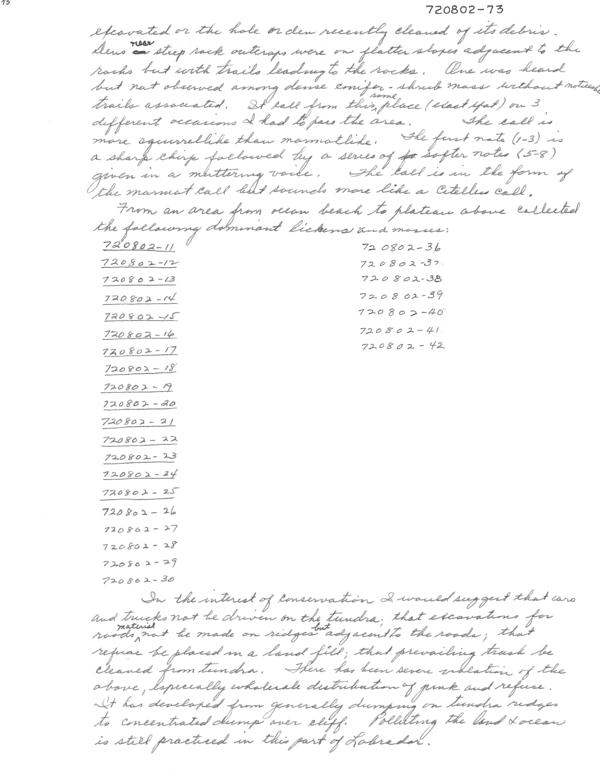 720802-73
excavated or the hole or den recently cleaned of its debris.
Dens near steep rock outcrops were on flatter slopes adjacent to the
rocks but with trails leading to the rocks. One was heard
but not observed among dense conifer-shrub mass without noticeable
trails associated. It call from this same place (exact spot) on 3
different occasions I had to pass the area. The call is
more squirrellike than marmotlike. The first note (1-3) is
a sharp chirp followed by a series of softer notes (5-8)
given in a muttering voice. The call is in the form of
the marmot call but sounds more like a Citellus call.
From an area from ocean beach to plateau above collected
the following dominant lichens and mosses:
720802-11 720802-36
720802-12 720802-37
720802-13 720802-38
720802-14 720802-39
720802-15 720802-40
720802-16 720802-41
720802-17 720802-42
720802-18
720802-19
720802-20
720802-21
720802-22
720802-23
720802-24
720802-25
720802-26
720802-27
720802-28
720802-29
720802-30
In the interest of conservation I would suggest that cars
and trucks not be driven on the tundra; that excavations for
roads material not be made on ridges but adjacent to the roads; that
refuse be placed in a land fill; that prevailing trash be
cleaned from tundra. There has been severe violation of the
above, especially wholesale distribution of junk and refuse.
It has developed from generally dumping on tundra ridges
to concentrated dump over cliff. Polluting the land & ocean
is still practiced in this part of Labrador.